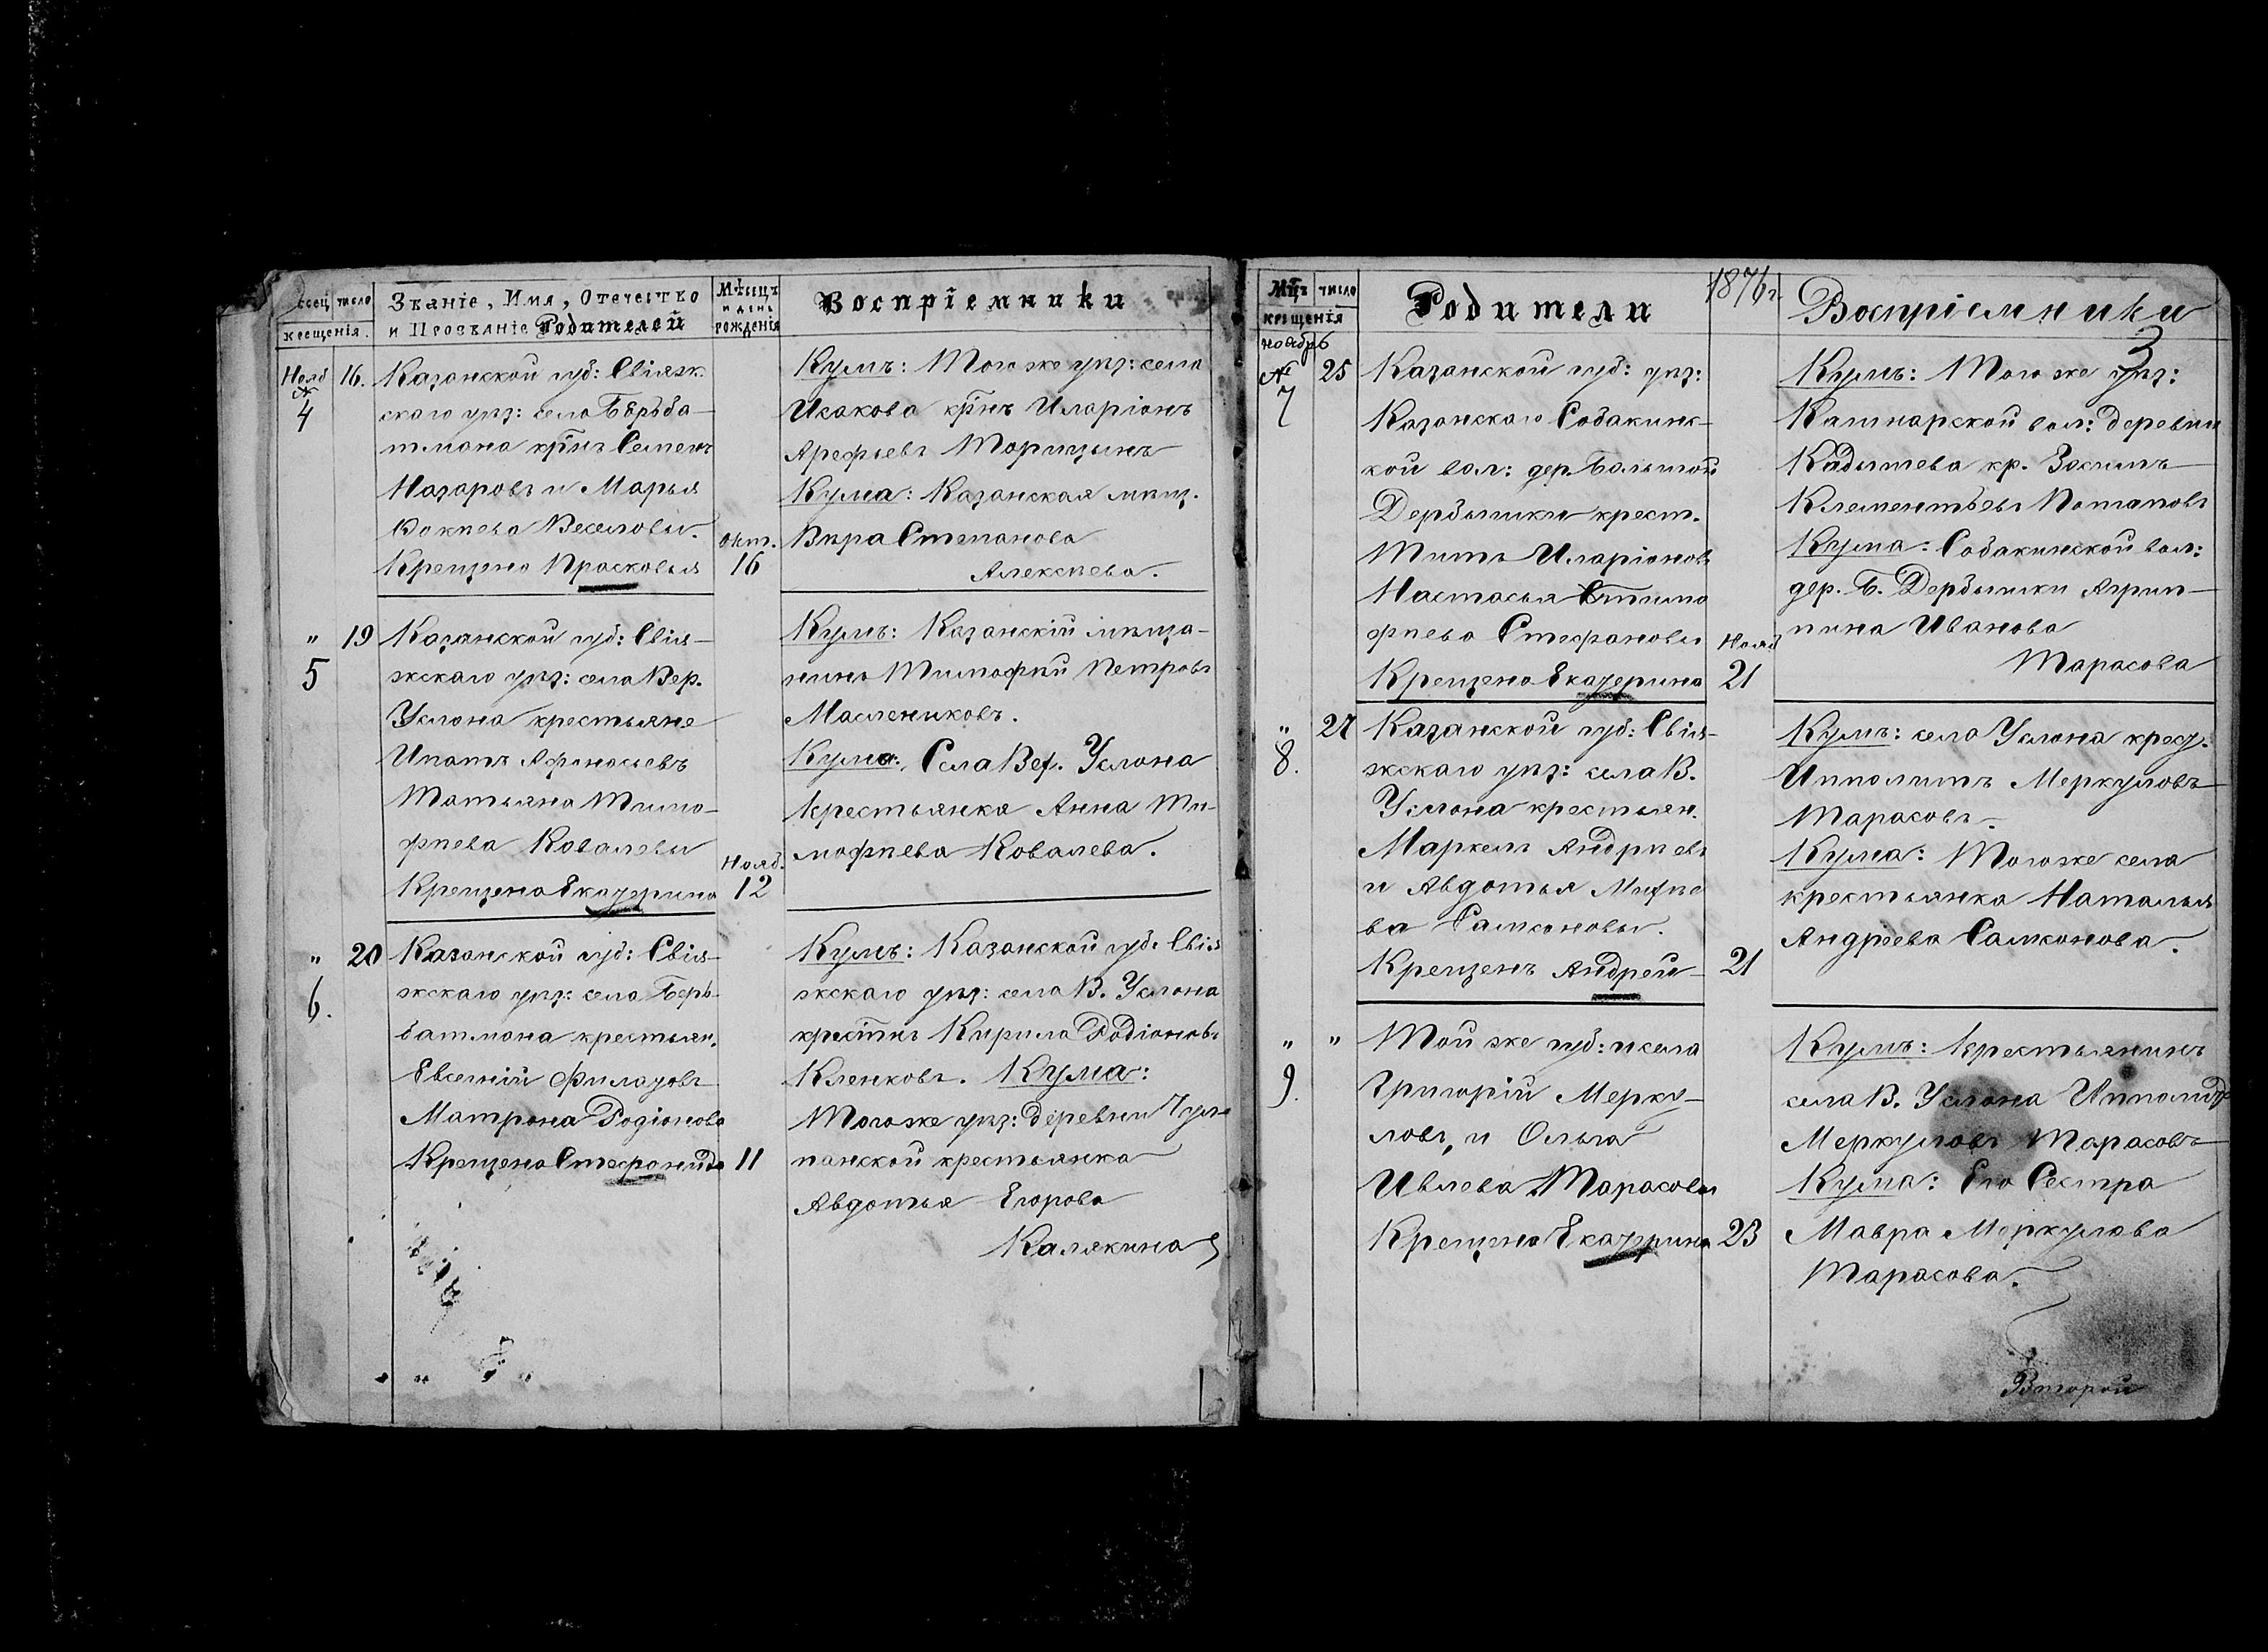 ссец число
крещенія.
Званіе, Имя, Отечество
и Прозваніе Родителей
Мѣсяцъ
и день
рожденія
Воспріемники
Нояб 16.
№
4
Казанской губ: Свіяж.
скаго уѣз: села
кр̃нъ Семенъ
Назаровъ и Марья
Веселовы.
Крещена Прасковья
Окт.
16
Кумъ: Того же уѣз: села
Исакова кр̃нъ Иларіонъ
Арефьевъ
Кума: Казанская мѣщ.
Вѣра Степанова
Алексѣева.
" 19
5
Казанской губ: Свія-
жскаго уѣз: села Вер.
Услона крестьяне
Ипатъ Афонасьевъ
Татьяна Тимо-
фѣева Ковалевы
Крещена Екатерина
Нояб.
12
Кумъ: Казанскій мѣща-
нинъ Тимофѣй Петровъ
Маслениковъ.
Кума: Села Вер. Услона
крестьянка Анна Ти-
мофѣева Ковалева.
" 20
6.
Казанской губ: Свія-
жскаго уѣз: села Беръ-
батмана крестьян.
Евсегній Филатовъ
Матрона Родіонова
Крещена Стефанида
11
Кумъ: Казанской губ. Свія
жскаго уѣз: села В. Услона
Кирила Родіоновъ
Кленковъ. Кума:
Того же уѣз: деревни
крестьянка
Авдотья Егорова
Калякина
Мц̃ъ число
крещенія
Родители
1876 г.
Воспріемники
3
ноябрь
№ 25
7
Казанской губ: уѣз:
Казанскаго Собакинс-
кой вол: дер. Большой
Дербышки крест.
Титъ Иларіоновъ
Настасья Тимо
фѣева Стефановы
Крещена Екатерина
Нояб
21
Кумъ: Того же уѣз:
Каймарской вол: деревни
Кадышева кр. Зосимъ
Клементьевъ Потаповъ
Кума: Собакинской вол:
дер. Б. Дербышки Агрип-
пина Иванова
Тарасова
" 27
8.
Казанской губ: Свія-
жскаго уѣз: села В.
Услона крестьян.
Маркелъ Андрѣевъ
и Авдотья Мокѣе
ва Самсоновы.
Крещенъ Андрей
21
Кумъ: села Услона крест.
Ипполитъ Меркуловъ
Тарасовъ.
Кума: Того же села
крестьянка Наталья
Андріева Самсонова.
" "
9.
Той же губ: и села
Григорій Мерку-
ловъ, и Ольга
Ивлева Тарасовы
Крещена Екатерина
23
Кумъ: Крестьянинъ
села В. Услона Ипполитъ
Меркуловъ Тарасовъ
Кума: Его Сестра
Мавра Меркулова
Тарасова.
Второй